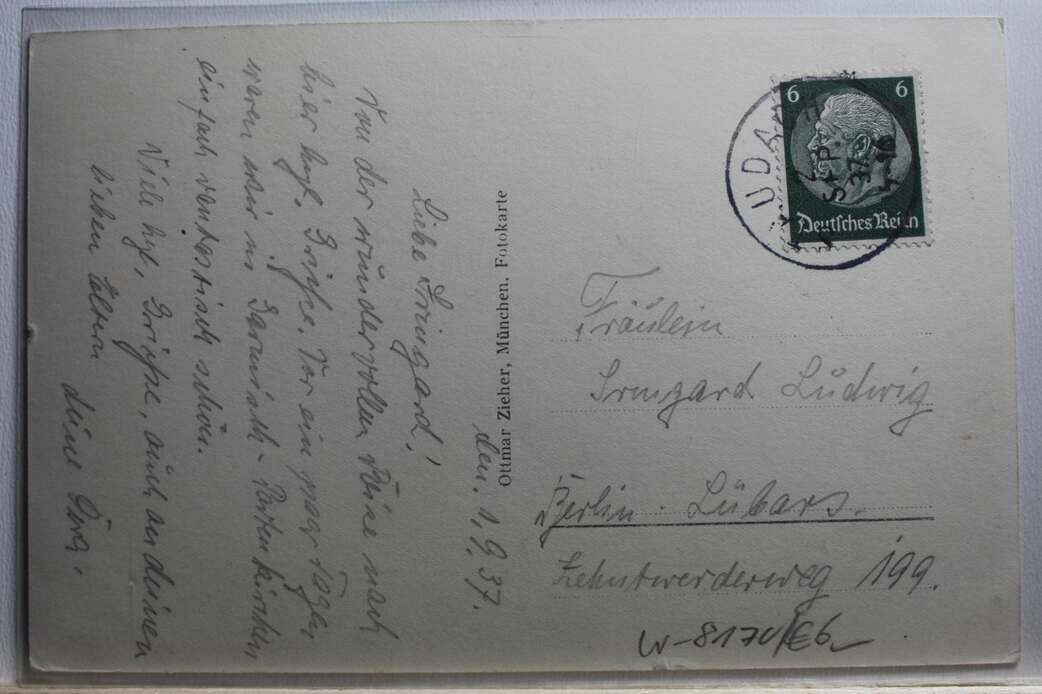 den. 1.9.37.
Liebe Irmgard!
Von der wundervollen Reise nach
hier hzl. Grüsse. Vor ein paar Tagen
waren wir in Garmisch-Partenkirchen,
einfach vantastisch schön.
Viele hzl. Grüsse, auch an deinen
lieben Eltern
deine
Ottmar Zieher, München. Fotokarte
6 6
Deutsches Reich
SEP. 37
Fräulein
Irmgard Lüdwig
Berlin - Lübars.
Zehntwerderweg 199.
W-8170/E6